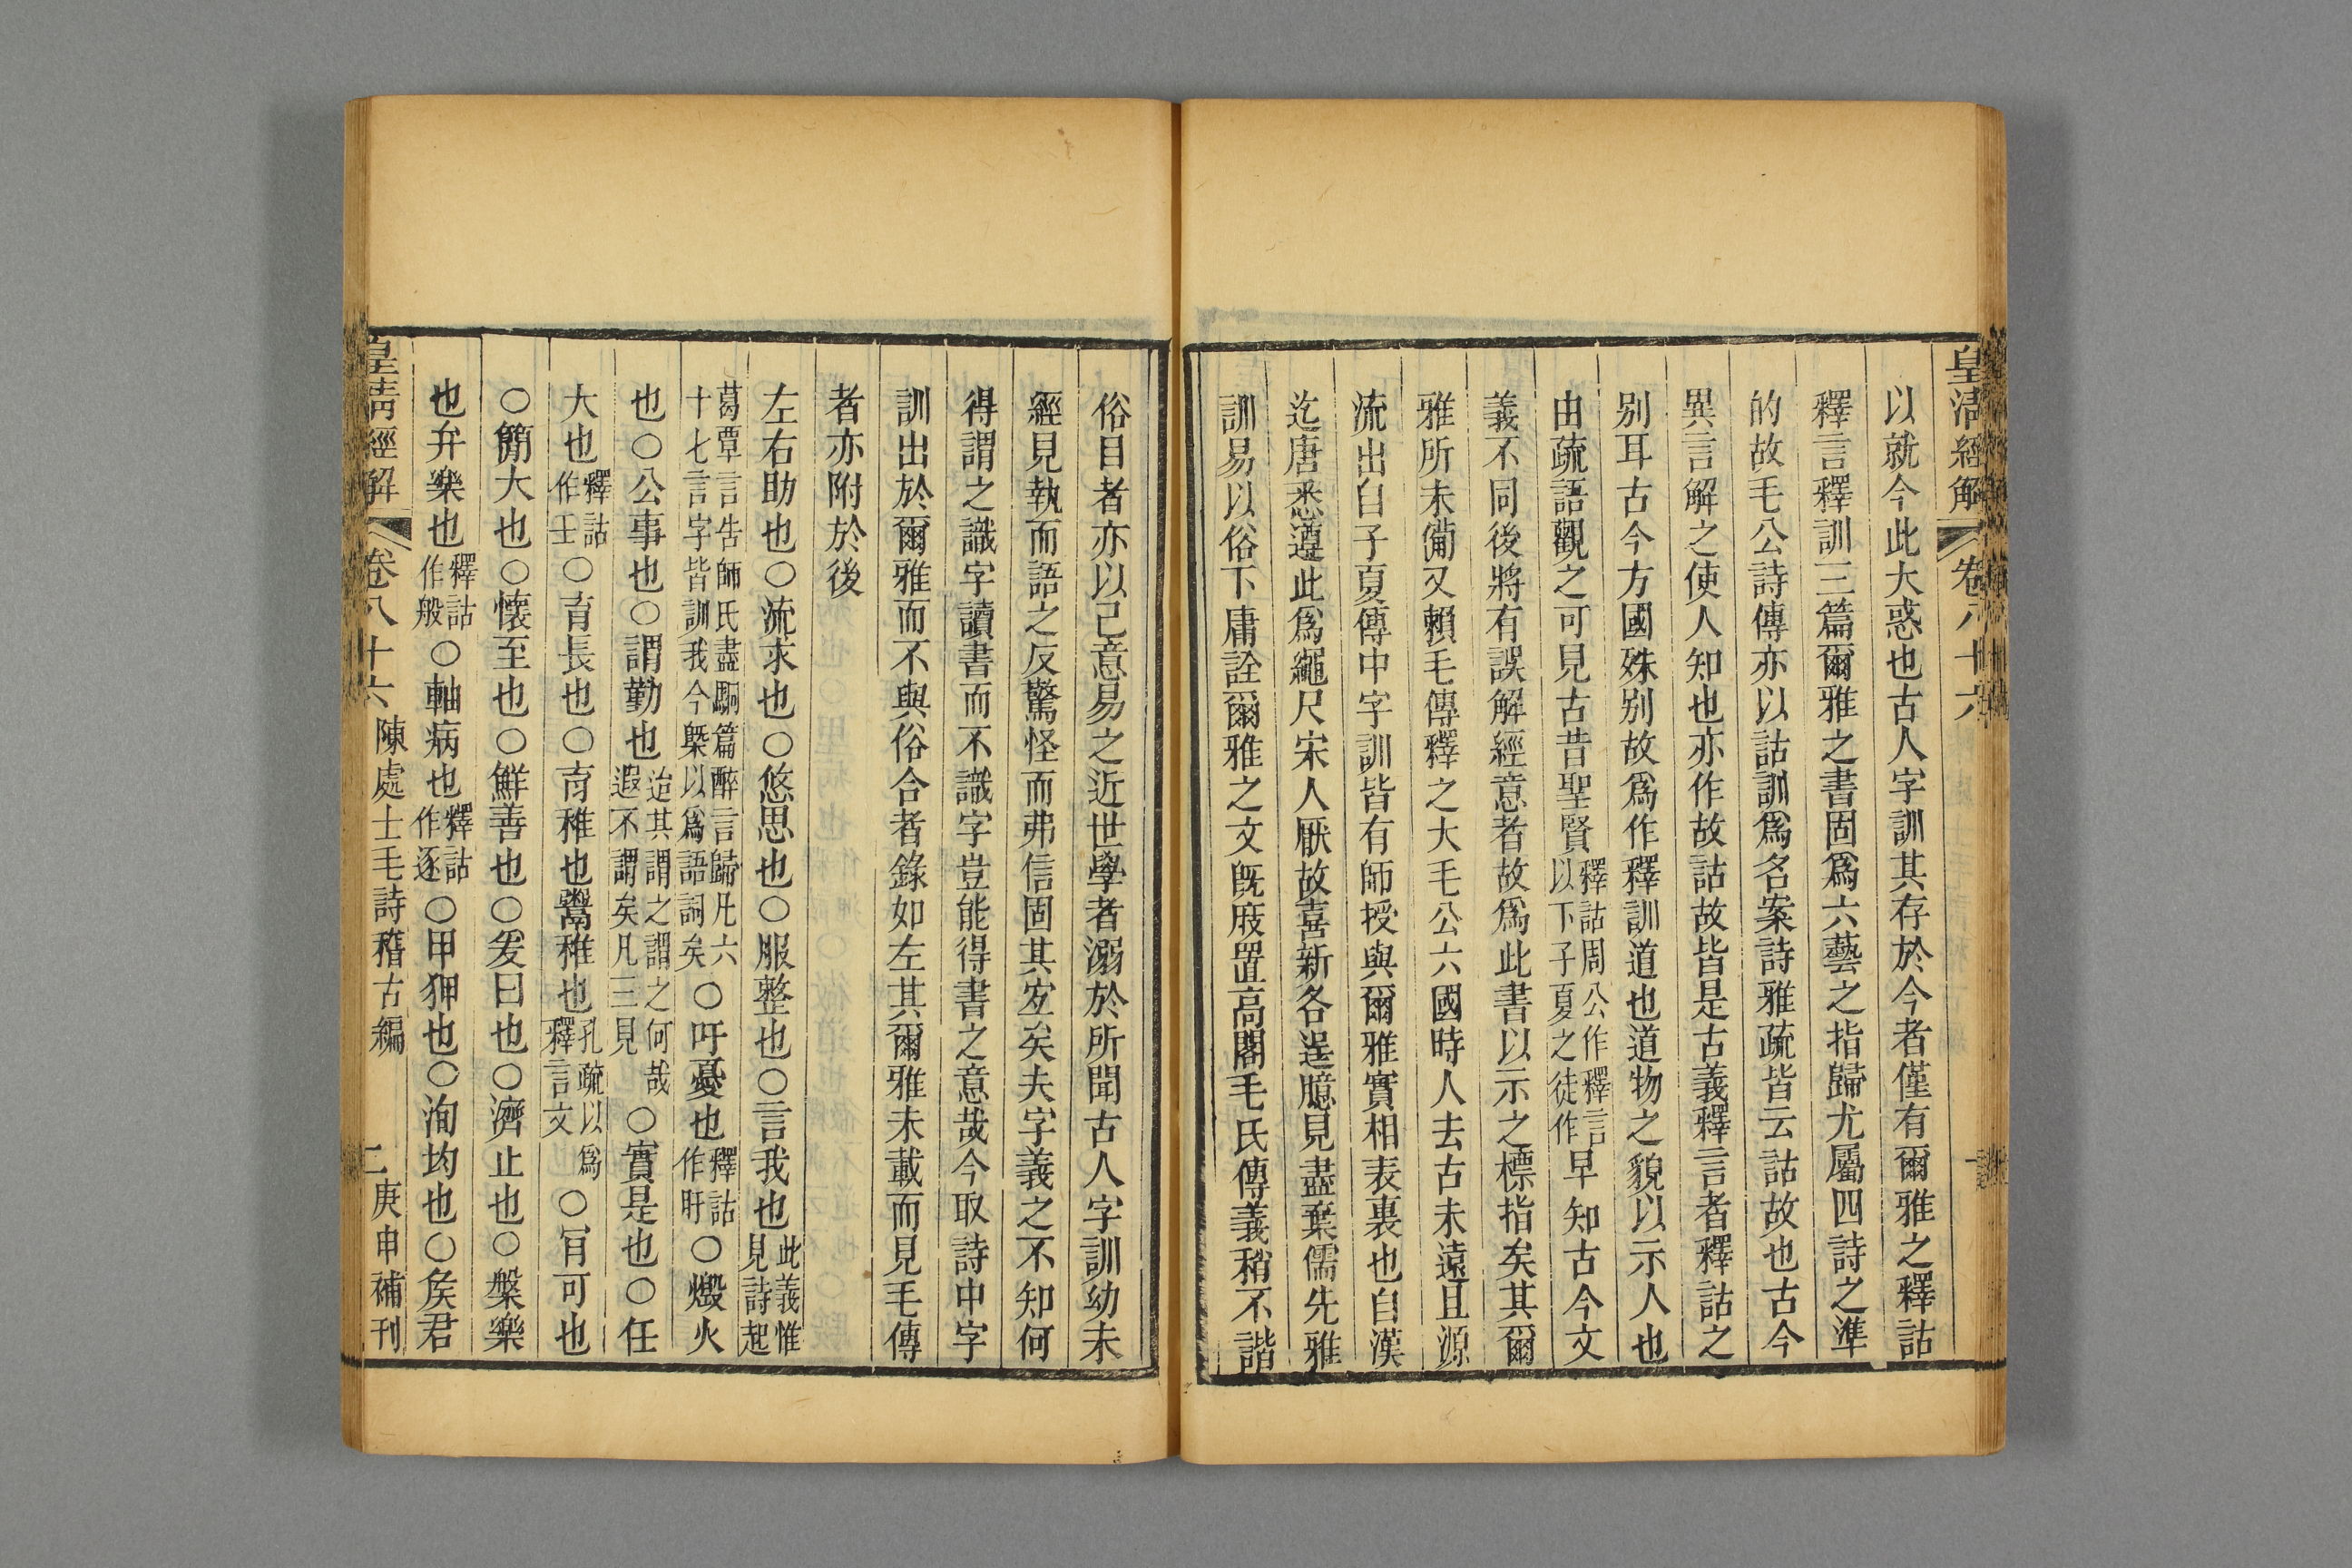 皇清經解 卷八十六 一
以就今此大惑也古人字訓其存於今者僅有爾雅之釋詁
釋言釋訓三篇爾雅之書固爲六藝之指歸尤屬四詩之準
的故毛公詩傳亦以詁訓爲名案詩雅疏皆云詁故也古今
異言解之使人知也亦作故詁故皆是古義釋言者釋詁之
别耳古今方國殊别故爲作釋訓道也道物之貌以示人也
由疏語觀之可見古昔聖賢釋詁周公作釋言以下子夏之徒作早知古今文
義不同後將有誤解經意者故爲此書以示之標指矣其爾
雅所未備又賴毛傳釋之大毛公六國時人去古未遠且源
流出自子夏傳中字訓皆有師授與爾雅實相表裏也自漢
迄唐悉遵此爲繩尺宋人厭故喜新各逞臆見盡棄儒先雅
訓易以俗下庸詮爾雅之文既庋置高閣毛氏傳義稍不諧
俗目者亦以己意易之近世學者溺於所聞古人字訓幼未
經見執而語之反驚怪而弗信固其宐矣夫字義之不知何
得謂之識字讀書而不識字豈能得書之意哉今取詩中字
訓出於爾雅而不與俗合者錄如左其爾雅未載而見毛傳
者亦附於後
左右助也○流求也○悠思也○服整也○言我也此義惟見詩起
葛覃言告師氏盡駉篇醉言歸凡六十七言字皆訓我今槩以爲語詞矣○吁憂也釋詁作盱○燬火
也○公事也○謂勤也迨其謂之謂之何哉遐不謂矣凡三見○實是也○任
大也釋詁作壬○育長也○育稚也鬻稚也孔疏以爲釋言文○肎可也
○簡大也○懷至也○鮮善也○爰曰也○濟止也○槃樂
也弁樂也釋詁作般○軸病也釋詁作逐○甲狎也○洵均也○矦君
皇清經解 卷八十六 陳處士毛詩稽古編 二 庚申補刊